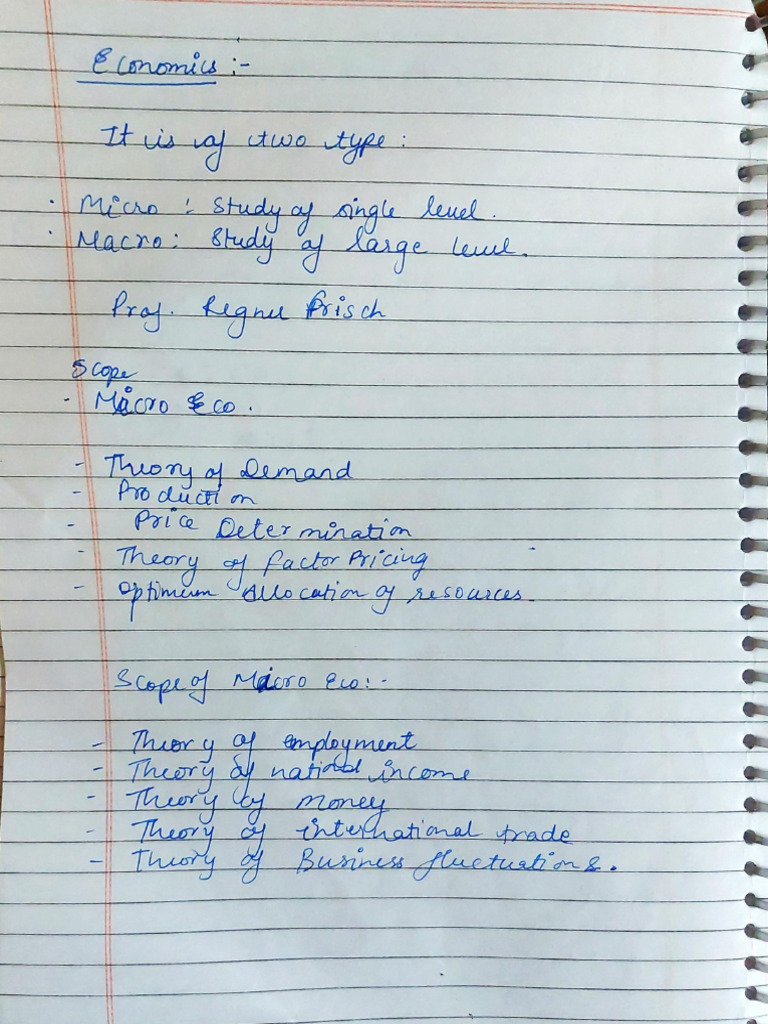 Economics :-
It is of two type :
· Micro : Study of single level.
· Macro : Study of large level.
Prof. Regnu Frisch
Scope
- Micro Eco.
- Theory of Demand
- Production
- Price Determination
- Theory of factor Pricing
- Optimum Allocation of resources.
Scope of Macro Eco :-
- Theory of employment
- Theory of national income
- Theory of money
- Theory of international trade
- Theory of Business fluctuations.